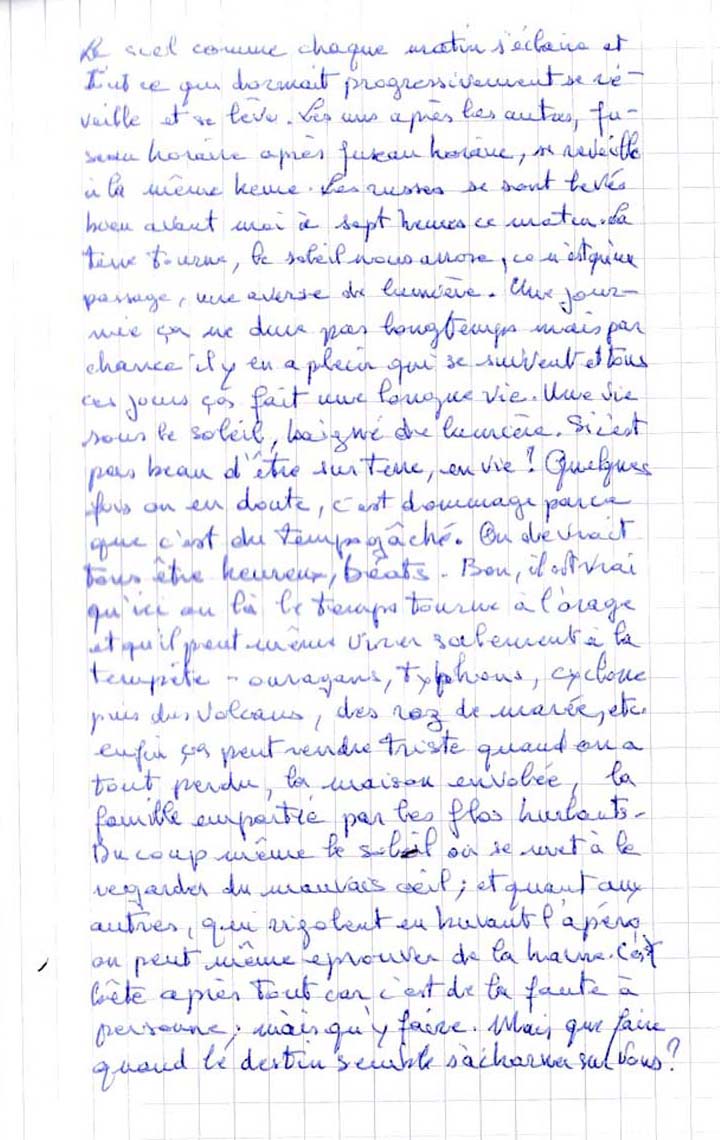 Le ciel comme chaque matin s'éclaire et
tout ce qui dormait progressivement se ré-
veille et se lève. Les uns après les autres, fu-
seau horaire après fuseau horaire, se réveille
à la même heure. Les russes se sont levés
bien avant moi à sept heures ce matin. La
terre tourne, le soleil nous arrose, ce n'est qu'un
passage, une averse de lumière. Une jour-
née ça ne dure pas longtemps mais par
chance il y en a plein qui se suivent et tous
ces jours ça fait une longue vie. Une vie
sous le soleil, baigné de lumière. Si c'est
pas beau d'être sur terre, en vie ? Quelques
fois on en doute, c'est dommage parce
que c'est du temps gâché. On devrait
tous être heureux, béats. Bon, il est vrai
qu'ici ou là le temps tourne à l'orage
et qu'il peut même virer salement à la
tempête - ouragans, typhons, cyclone
puis des volcans, des raz de marée, etc.
enfin ça peut rendre triste quand on a
tout perdu, la maison envolée, la
famille emportée par les flos hurlants.
Du coup même le soleil on se met à le
regarder du mauvais œil ; et quant aux
autres, qui rigolent en buvant l'apéro
on peut même éprouver de la haine. C'est
bête après tout car c'est de la faute à
personne ; mais qu'y faire. Mais que faire
quand le destin semble s'acharner sur vous ?